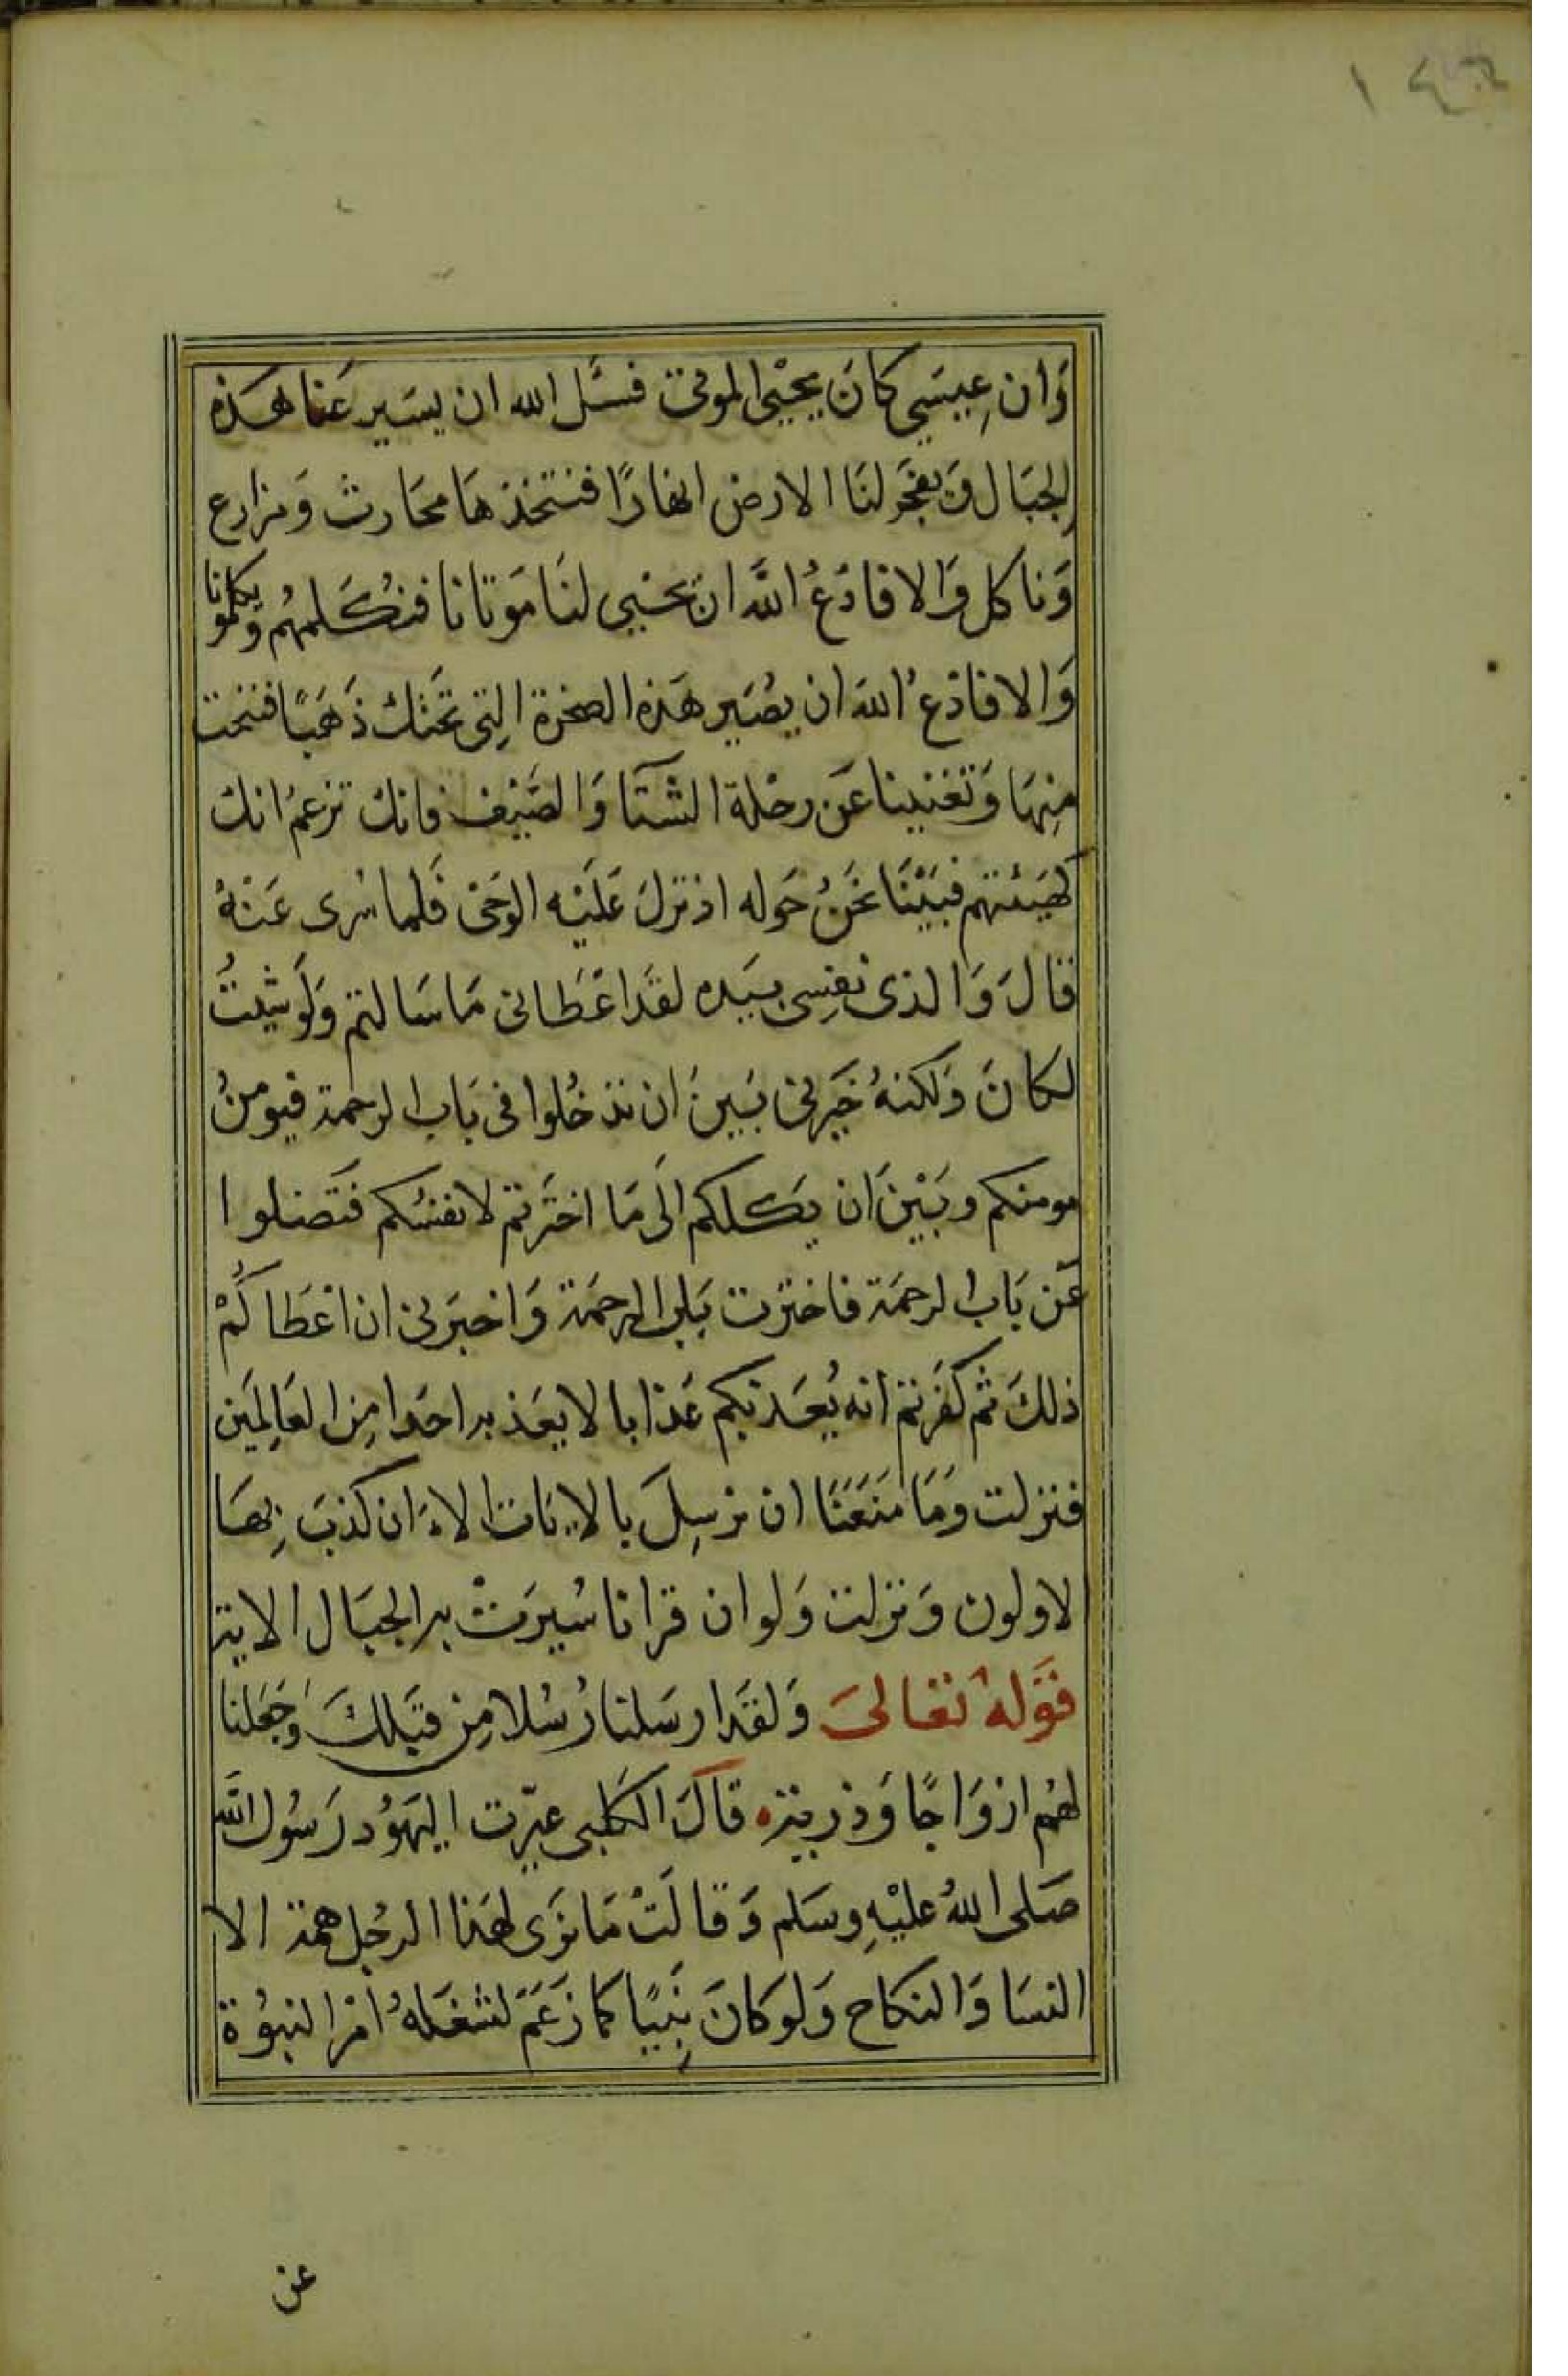 وَان عِيسَي كانَ يحيْي الموتى فسَل الله ان يسَير عَنا هَذه
الجبَال وَيفجَر لنَا الارض انهارًا فنتخذهَا محَارث وَمزارع
وَناكل وَالا فادْعُ اللَّه ان يحْيي لنَا مَوتانا فنُكَلمهُم وَيكلمونا
وَالا فادْعُ اللهَ ان يصُيَر هَذه الصخرة التِي تحَتك ذَهَبًا فننحت
مِنهَا وَتغنينا عَن رحْلة الشتَا وَالصَيْف فانك تزعمُ انك
كهَيئتهم فبَيْنَا نحَنُ حَوله اذ نزلَ عَليْه الوَحَى فَلما سُرى عَنْهُ
قالَ وَالذى نفسِى بيَده لقَد اعْطَانى مَا سَالتم وَلَو شيتُ
لكانَ وَلكنهُ خَيرنى بَينَ ان تدخُلوا فى بَاب الرحمة فيومنُ
مومنكم وبَيْنَ ان يكلكم الَى مَا اختَرتم لانفسُكم فتَضلوا
عَن بَاب الرحمَة فاخترت بَاب الرحمَة وَاخبرَنى ان اعْطَاكُمْ
ذلكَ ثم كفَرتم انه يُعَذبكم عَذابا لا يعَذبه احَدا مِن العَالِمَين
فنزلت وَمَا مَنَعَنَا ان نرسِلَ بالايَات الاءَ ان كذبَ بِهَا
لاولون وَنزلت وَلو ان قرانا سُيرَتْ به الجبَال الاية
قَوَلهُ تعَالىَ وَلقَد ارسَلنا رُسُلا مِن قبَلكَ وَجَعَلنا
لهُم ازوَاجًا وَذرية قالَ الكَلبى عيّرت اليهَوُد رَسُول اللَّه
صَلى اللهُ عليْهِ وسَلم وَقالَتْ مَا نرَى لهَذا الرجُل همة الا
النسَا وَالنكاح وَلو كانَ نِبَيًا كما زَعَمَ لشغَلهُ امْر النبوُة
عن